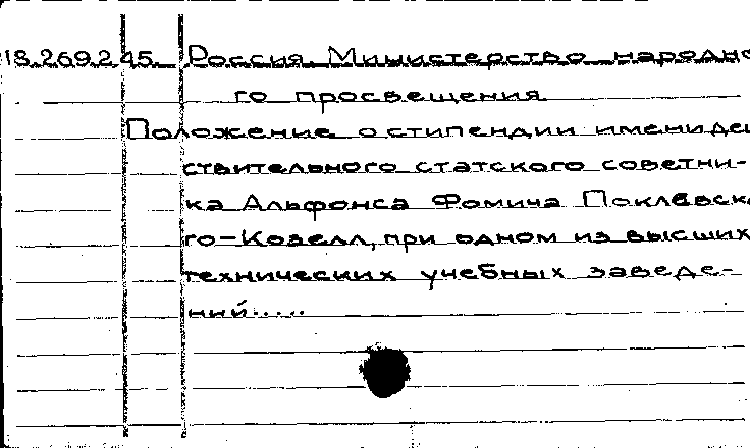 18.269.2.45 Россия. Министерство народно
го просвещения
Положение о стипендии имени дей
ствительного статского советни-
ка Альфонса Фомича Поклевск
го-Козелл, при одном из высших
технических учебных заведе-
ний.....